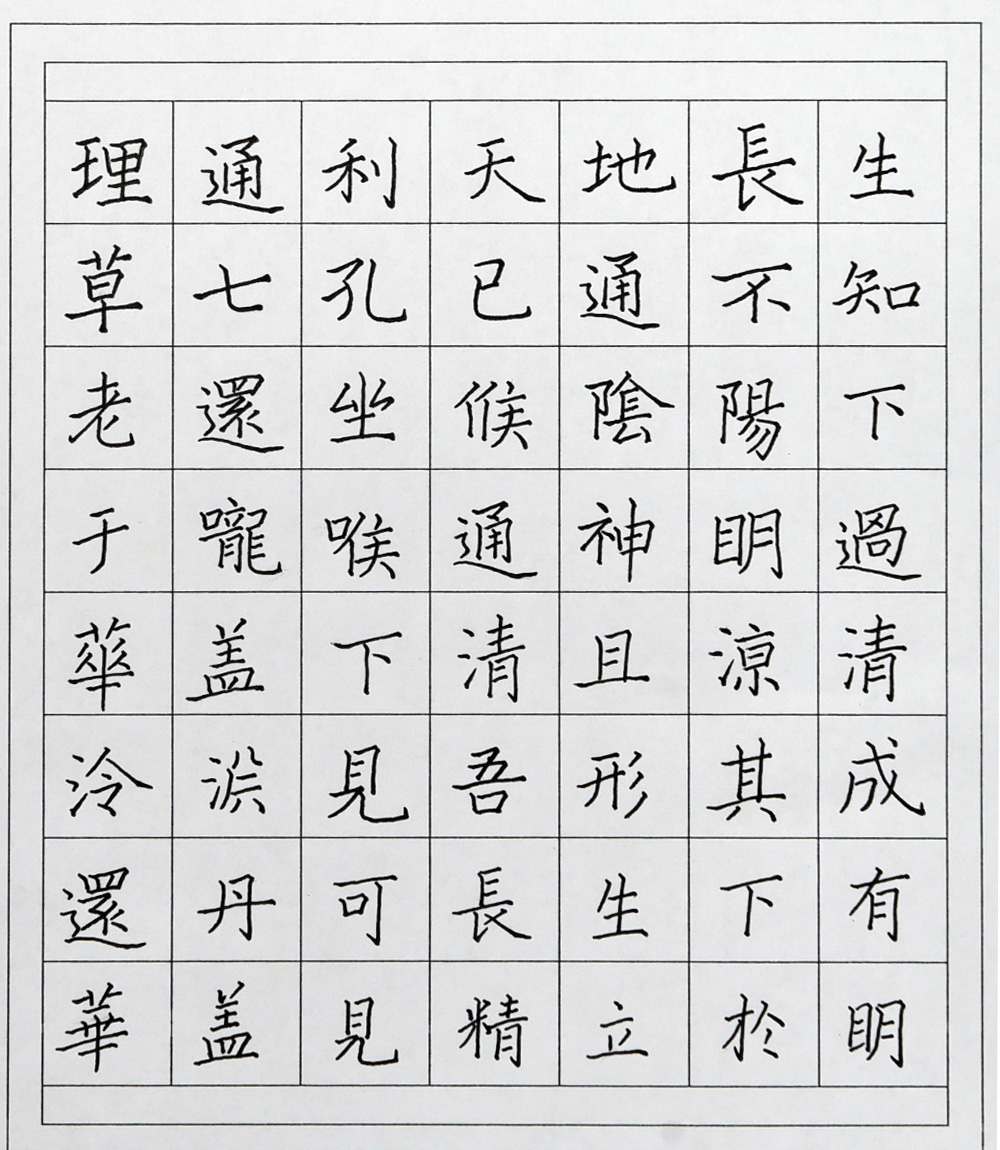 理通利天地長生
草七孔已通不知
老還坐候陰陽下
于嚨喉通神明過
華盖下清且涼清
泠淵見吾形其成
還丹可長生下有
華盖見精立於明